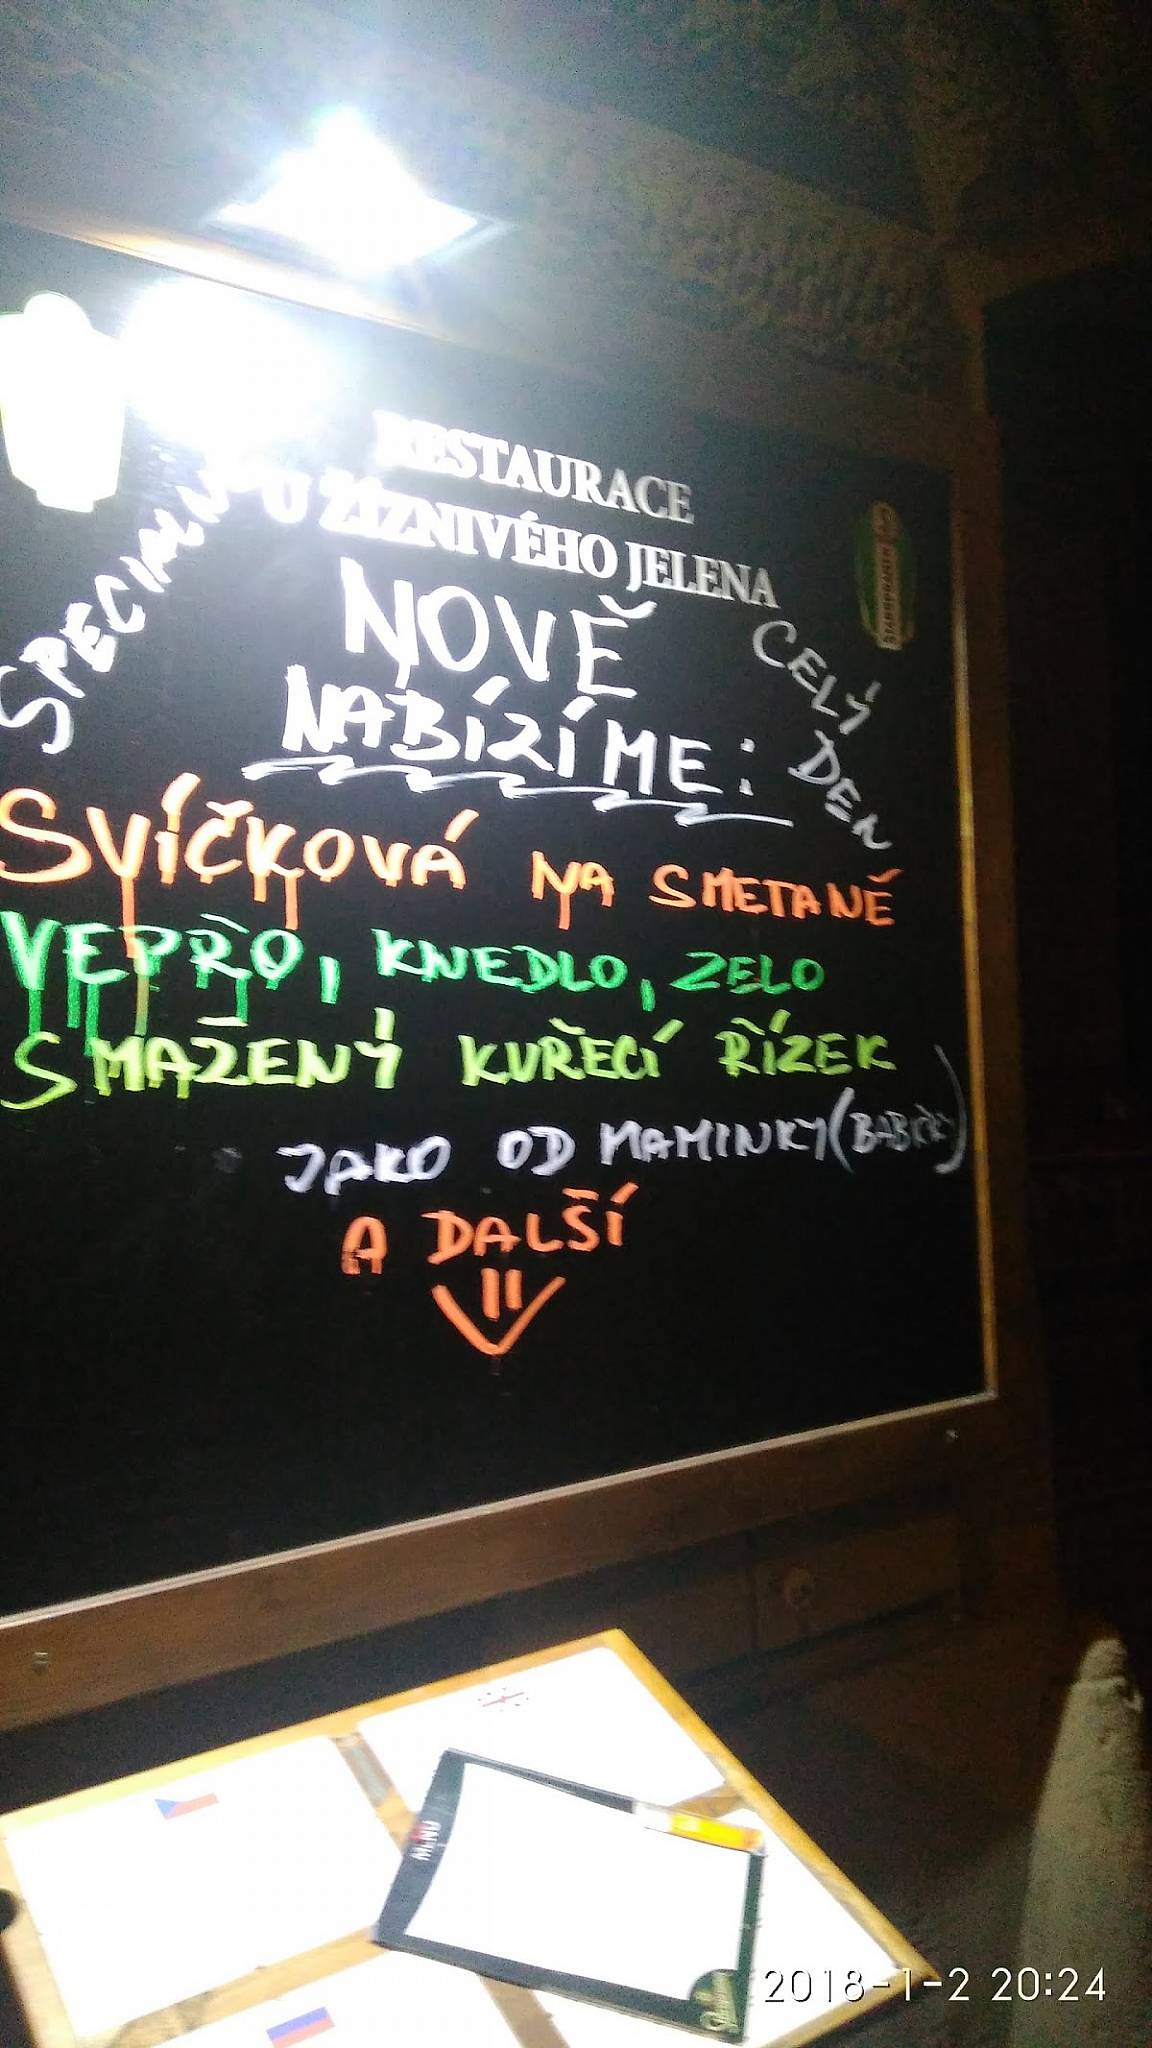 RESTAURACE
U ŽÍZNIVÉHO JELENA
NOVĚ
NABÍZÍME:
CELÝ
DEN
SVÍČKOVÁ NA SMETANĚ
VEPŘO, KNEDLO, ZELO
SMAŽENÝ KUŘECÍ ŘÍZEK
JAKO OD MAMINKY (BABIČKY)
A DALŠÍ
MENU
2018-1-2 20:24